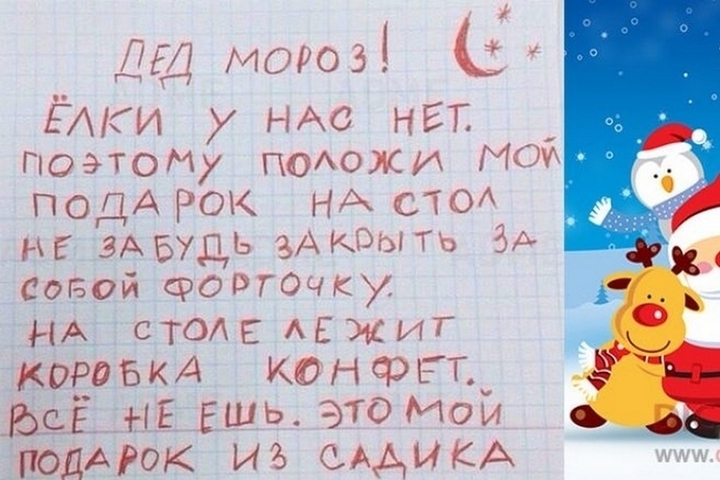 ДЕД МОРОЗ!
ЁЛКИ У НАС НЕТ.
ПОЭТОМУ ПОЛОЖИ МОЙ
ПОДАРОК НА СТОЛ
НЕ ЗАБУДЬ ЗАКРЫТЬ ЗА
СОБОЙ ФОРТОЧКУ.
НА СТОЛЕ ЛЕЖИТ
КОРОБКА КОНФЕТ.
ВСЁ НЕ ЕШЬ. ЭТО МОЙ
ПОДАРОК ИЗ САДИКА
www.